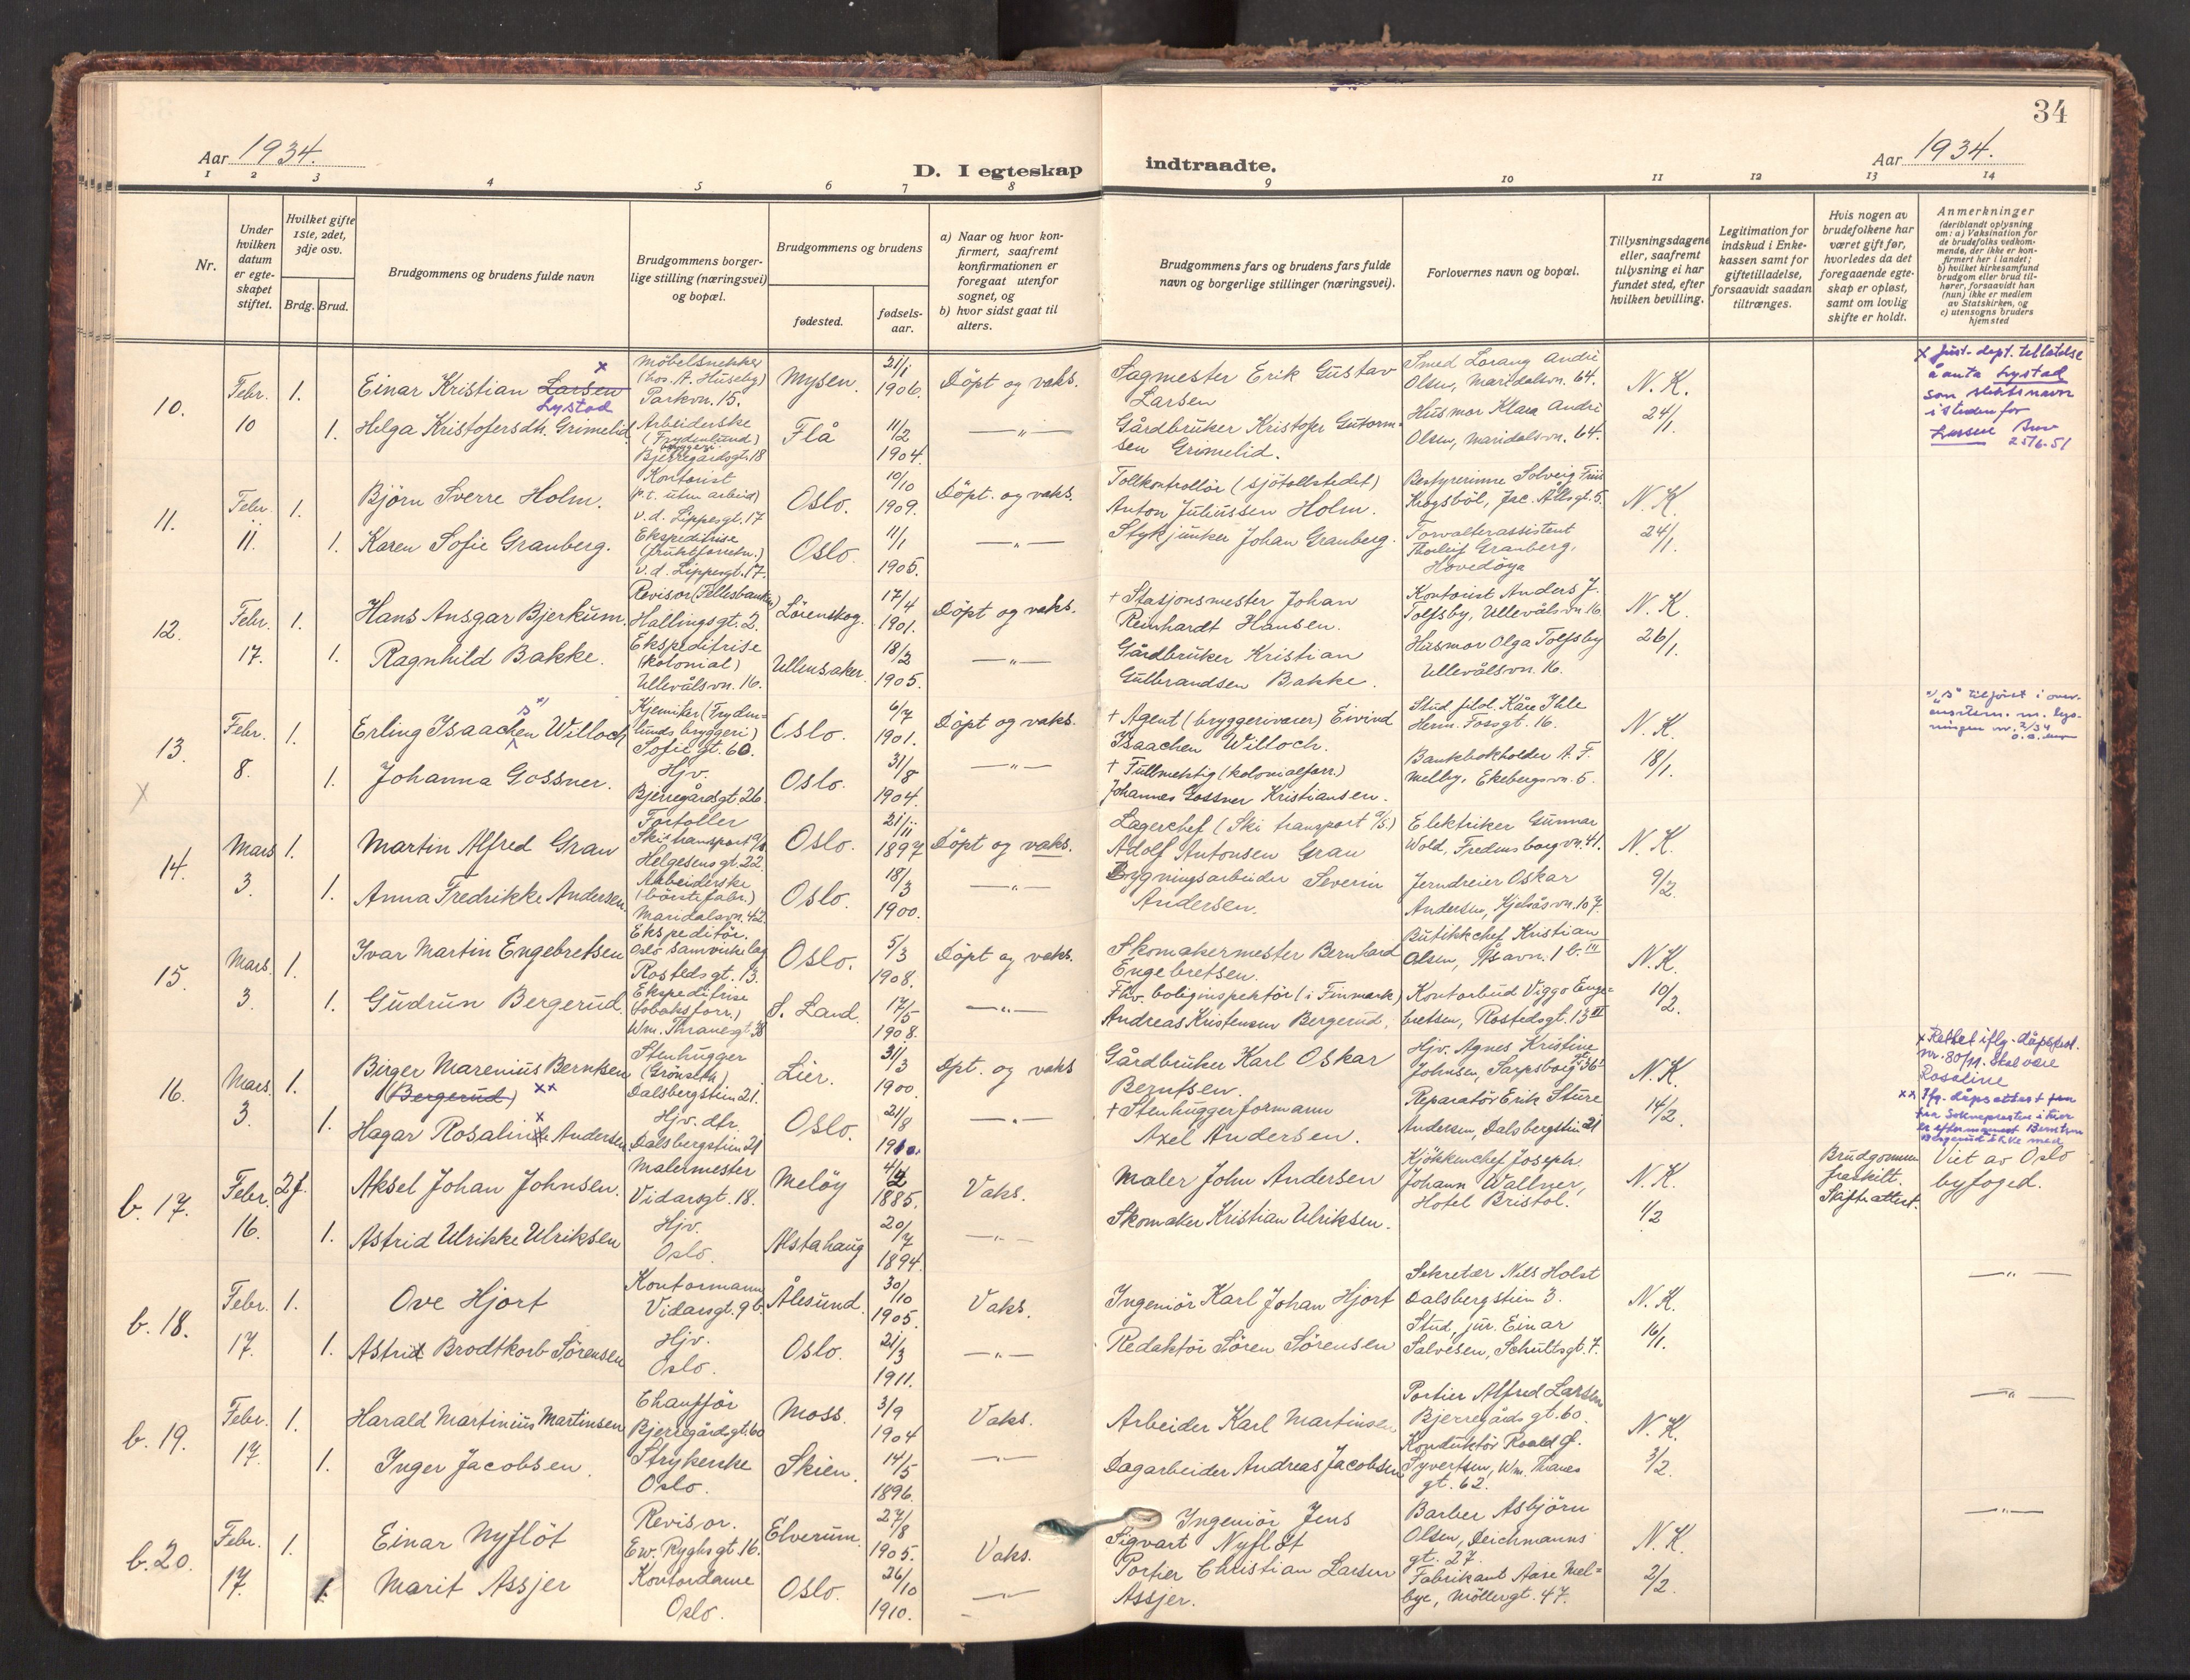 34
Aar 1934.
D. I egteskap
indtraadte.
Aar 1934.
1 2 3 4 5 6 7 8 9 10 11 12 13 14
Nr.
Under hvilken datum er egte-skapet stiftet.
Hvilket gifte 1ste, 2det, 3dje osv.
Brdg. Brud.
Brudgommens og brudens fulde navn
Brudgommens borger-lige stilling (næringsvei) og bopæl.
Brudgommens og brudens
fødested.
fødsels-aar.
a) Naar og hvor kon-firmert, saafremt konfirmationen er foregaat utenfor sognet, og
b) hvor sidst gaat til alters.
Brudgommens fars og brudens fars fulde navn og borgerlige stillinger (næringsvei).
Forlovernes navn og bopæl.
Tillysningsdagene eller, saafremt tillysning ei har fundet sted, efter hvilken bevilling.
Legitimation for indskud i Enke-kassen samt for giftetilladelse, forsaavidt saadan tiltrænges.
Hvis nogen av brudefolkene har været gift før, hvorledes da det foregaaende egte-skap er opløst, samt om lovlig skifte er holdt.
Anmerkninger
(deriblandt oplysning om: a) Vaksination for de brudefolks vedkom-mende, der ikke er kon-firmert her i landet; b) hvilket kirkesamfund brudgom eller brud til-hører, forsaavidt han (hun) ikke er medlem av Statskirken, og c) utensogns bruders hjemsted
10.
Febr. 10
1.
Einar Kristian Larsen x
Lystad
Möbelsnekker
(hos A. Huseby)
Parkvn. 15.
Mysen.
21/1 1906.
Döpt og vaks.
Sagmester Erik Gustav
Larsen
Smed Lorang André
Olsen, Maridalsvn. 64.
N. K.
24/1.
x Just.-dept. tillatelse
å anta Lystad
som slektsnavn
isteden for
Larsen
25/6-51
1.
Helga Kristofersdtr. Grimelid
Arbeiderske
(Frydenlund)
Bjerregårdsgt. 18
Flå
11/2 1904.
—"—
Gårdbruker Kristofer Gutorm-
sen Grimelid.
Husmor Klara André
Olsen, Maridalsvn. 64.
11.
Febr. 11.
1.
Björn Sverre Holm.
Kontorist
(p.t. uten arbeid)
v. d. Lippesgt. 17
Oslo.
10/10 1909.
Döpt. og vaks.
Tollkontrollör (sjötollstedet)
Anton Juliussen Holm.
Bestyrerinne Solveig Friis
Krogsböl, Jac. Ållsgt. 5.
N. K.
24/1.
1.
Karen Sofie Granberg.
Ekspeditrise
(fruktforretn.)
v. d. Lippesgt. 17.
Oslo.
11/1 1905.
—"—
Stykjunker Johan Granberg.
Forvalterassistent
Thorleif Granberg,
Hovedöya
12.
Febr. 17.
1.
Hans Ansgar Bjerkum.
Revisor (Fellesbanken)
Hallingsgt. 2.
Lörenskog.
17/4 1901.
Döpt og vaks.
+ Stasjonsmester Johan
Reinhardt Hansen.
Kontorist Anders J.
Tolfsby, Ullevålsvn. 16
N. K.
26/1.
1.
Ragnhild Bakke.
Ekspeditrise
(kolonial)
Ullevålsvn. 16.
Ullensaker.
18/2 1905.
—"—
Gårdbruker Kristian
Gulbrandsen Bakke.
Husmor Olga Tolfsby
Ullevålsvn. 16.
13
x
Febr. 8.
1.
Erling Isaachsen Willoch
Kjemiker (Fryden-
lunds bryggeri)
Sofiegt. 60.
Oslo.
6/7 1901.
Döpt og vaks.
+ Agent (bryggerivarer) Eivind
Isaachen Willoch.
Stud. filol. Kåre Ihle
Herm. Fossgt. 16.
N. K.
18/1.
"s" tilföiet i over-
ensstem. m. lys-
ningen nr. 2/34
1.
Johanna Gossner.
Hjv.
Bjerregårdsgt. 26.
Oslo.
31/8 1904.
—"—
+ Fullmektig (kolonialforr.)
Johannes Gossner Kristiansen.
Bankbokholder A. F.
Melby, Ekebergvn. 5.
14.
Mars 3.
1.
Martin Alfred Grau
Fortoller
Ski transport A/S
Helgesens gt. 22.
Oslo.
21/11 1897
Döpt og vaks.
Lagerchef (Ski transport A/S)
Adolf Antonsen Grau
Elektriker Gunnar
Wold, Fredensborgvn. 41.
N. K.
9/2.
1.
Anna Fredrikke Andersen.
Arbeiderske
(börstefabr.)
Maridalsvn. 42.
Oslo.
18/3 1900.
—"—
Bygningsarbeider Severin
Andersen.
Jerndreier Oskar
Andersen, Kjelsåsvn. 107.
15.
Mars. 3.
1.
Ivar Martin Engebretsen
Ekspeditör.
Oslo Samvirkelag
Rostedsgt. 13.
Oslo.
5/3 1908.
Döpt og vaks.
Skomakermester Bernhard
Engebretsen.
Butikkchef Kristian
Olsen, Åsavn. 1 b. III
N. K.
10/2.
1.
Gudrun Bergerud.
Ekspeditrise
(tobaksforr.)
Wm. Thranesgt. 38
S. Land.
17/5 1908.
—"—
Fhv. boliginspektör (i Finmark)
Andreas Kristensen Bergerud.
Kontorbud Viggo Enge-
bretsen, Rostedsgt. 13 III
16.
Mars. 3.
1.
Birger Marenius Berntsen
(Bergerud) xx
Stenhugger
(Grönseth)
Dalsbergstien 21.
Lier.
31/3 1900.
Dpt. og vaks
Gårdbruker Karl Oskar
Berntsen.
Hjv. Agnes Kristine
Johnsen, Sarpsborggt. 36
N. K.
14/2.
x Rettet iflg. dåpsprot.
nr. 80/11. Skal være
Rosaline
xx Ifg. dåpsattest
fra Soknepresten i Lier
er efternavnet Berntsen
Bergerud ikke med
1.
Hagar Rosaline Andersen x
Hjv. dtr.
Dalsbergstien 21
Oslo.
21/8 1910.
—"—
+ Stenhuggerformann
Axel Andersen.
Reparatör Erik Sture
Andersen, Dalsbergstien 21
b. 17.
Febr. 16.
2 f.
Aksel Johan Johnsen.
Malermester
Vidarsgt. 18.
Melöy
4/2 1885.
Vaks.
Maler John Andersen
Kjökkenchef Joseph
Johann Wallner,
Hotel Bristol.
N. K.
1/2
Brudgommen
fraskilt.
Skifteattest.
Viet av Oslo
byfoged.
1.
Astrid Ulrikke Ulriksen
Hjv.
Oslo.
Alstahaug
20/7 1894.
—"—
Skomaker Kristian Ulriksen.
b. 18.
Febr. 17.
1.
Ove Hjort
Kontormann
Vidarsgt. 9 b.
Ålesund.
30/10 1905.
Vaks.
Ingeniör Karl Johan Hjort
Sekretær Nils Holst
Dalsbergstien 3.
N. K.
16/1.
—"—
1.
Astrid Brodtkorb Sörensen
Hjv.
Oslo.
Oslo.
21/3 1911.
—"—
Redaktör Sören Sörensen
Stud. jur. Einar
Salvesen, Schultsgt. 7.
b. 19.
Febr. 17.
1.
Harald Martinius Martinsen
Chaufför
Bjerregårdsgt. 60
Moss.
3/9 1904
Vaks.
Arbeider Karl Martinsen
Portier Alfred Larsen
Bjerregårdsgt. 60.
N. K.
3/2.
—"—
1.
Inger Jacobsen.
Strykerske
Oslo.
Skien.
14/5 1896.
—"—
Dagarbeider Andreas Jacobsen
Konduktör Roald G.
Syvertsen, Wm. Thranes
gt. 62.
b. 20.
Febr. 17.
1.
Einar Nyflöt
Revisor.
Ew. Ryghsgt. 16.
Elverum.
27/8 1905.
Vaks.
Ingeniör Jens
Sigvart Nyflöt
Barber Asbjörn
Olsen, Deichmanns
gt. 27.
N. K.
2/2.
—"—
1.
Marit Assjer
Kontordame
Oslo.
Oslo.
26/10 1910.
—"—
Portier Christian Larsen
Assjer.
Fabrikant Aase Mel-
bye, Möllergt. 47.